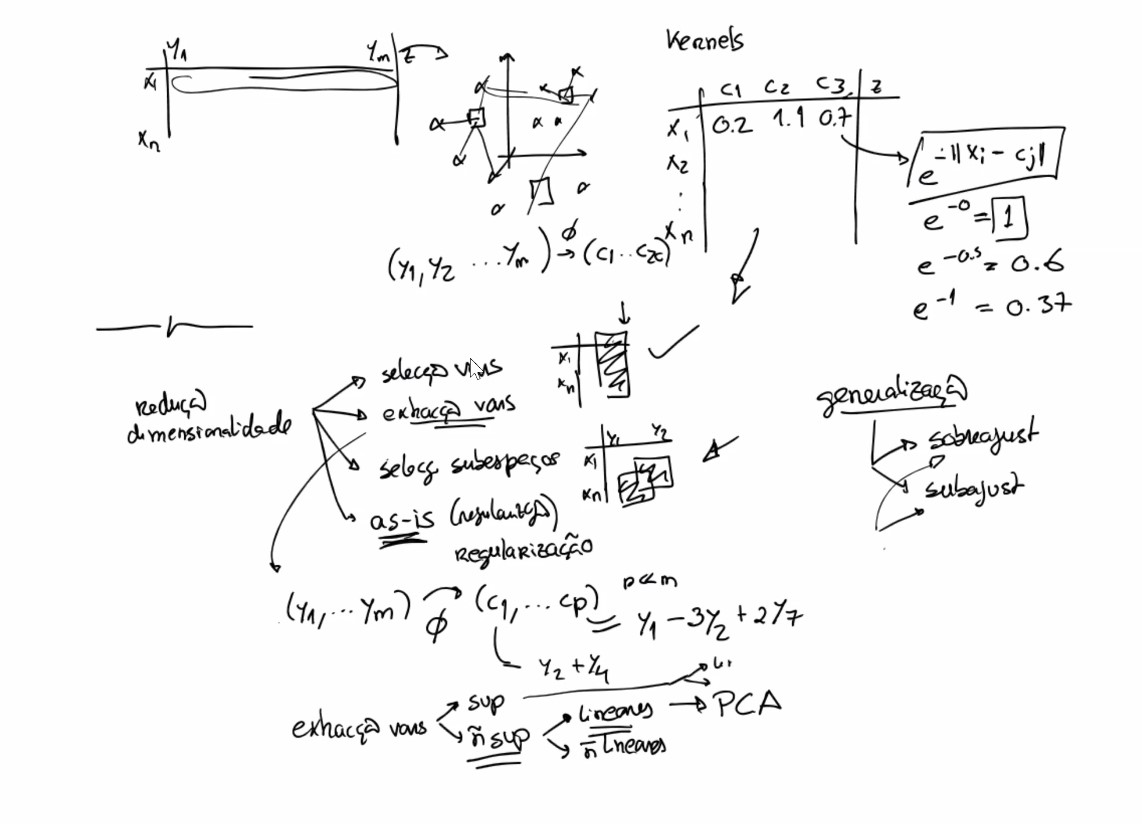 y₁ yₘ z
x₁
xₙ
Kernels
c₁ c₂ c₃ z
x₁ 0.2 1.1 0.7
x₂
⋮
xₙ
e^-||xᵢ - cⱼ||
e^-0 = 1
e^-0.5 = 0.6
e^-1 = 0.37
(y₁, y₂ ... yₘ) →ϕ (c₁ ... c
redução
dimensionalidade
selecção vars
extracção vars
selecç subespaços
as-is
Regularização
x₁
xₙ
y₁ y₂
x₁
xₙ
generalização
sobreajust
subajust
(y₁, ... yₘ) ϕ (c₁, ... cₚ) p≪m
y₁ - 3y₂ + 2y₇
y₂ + y₄
extracção vars
sup
ñ sup
lineares → PCA
ñ lineares